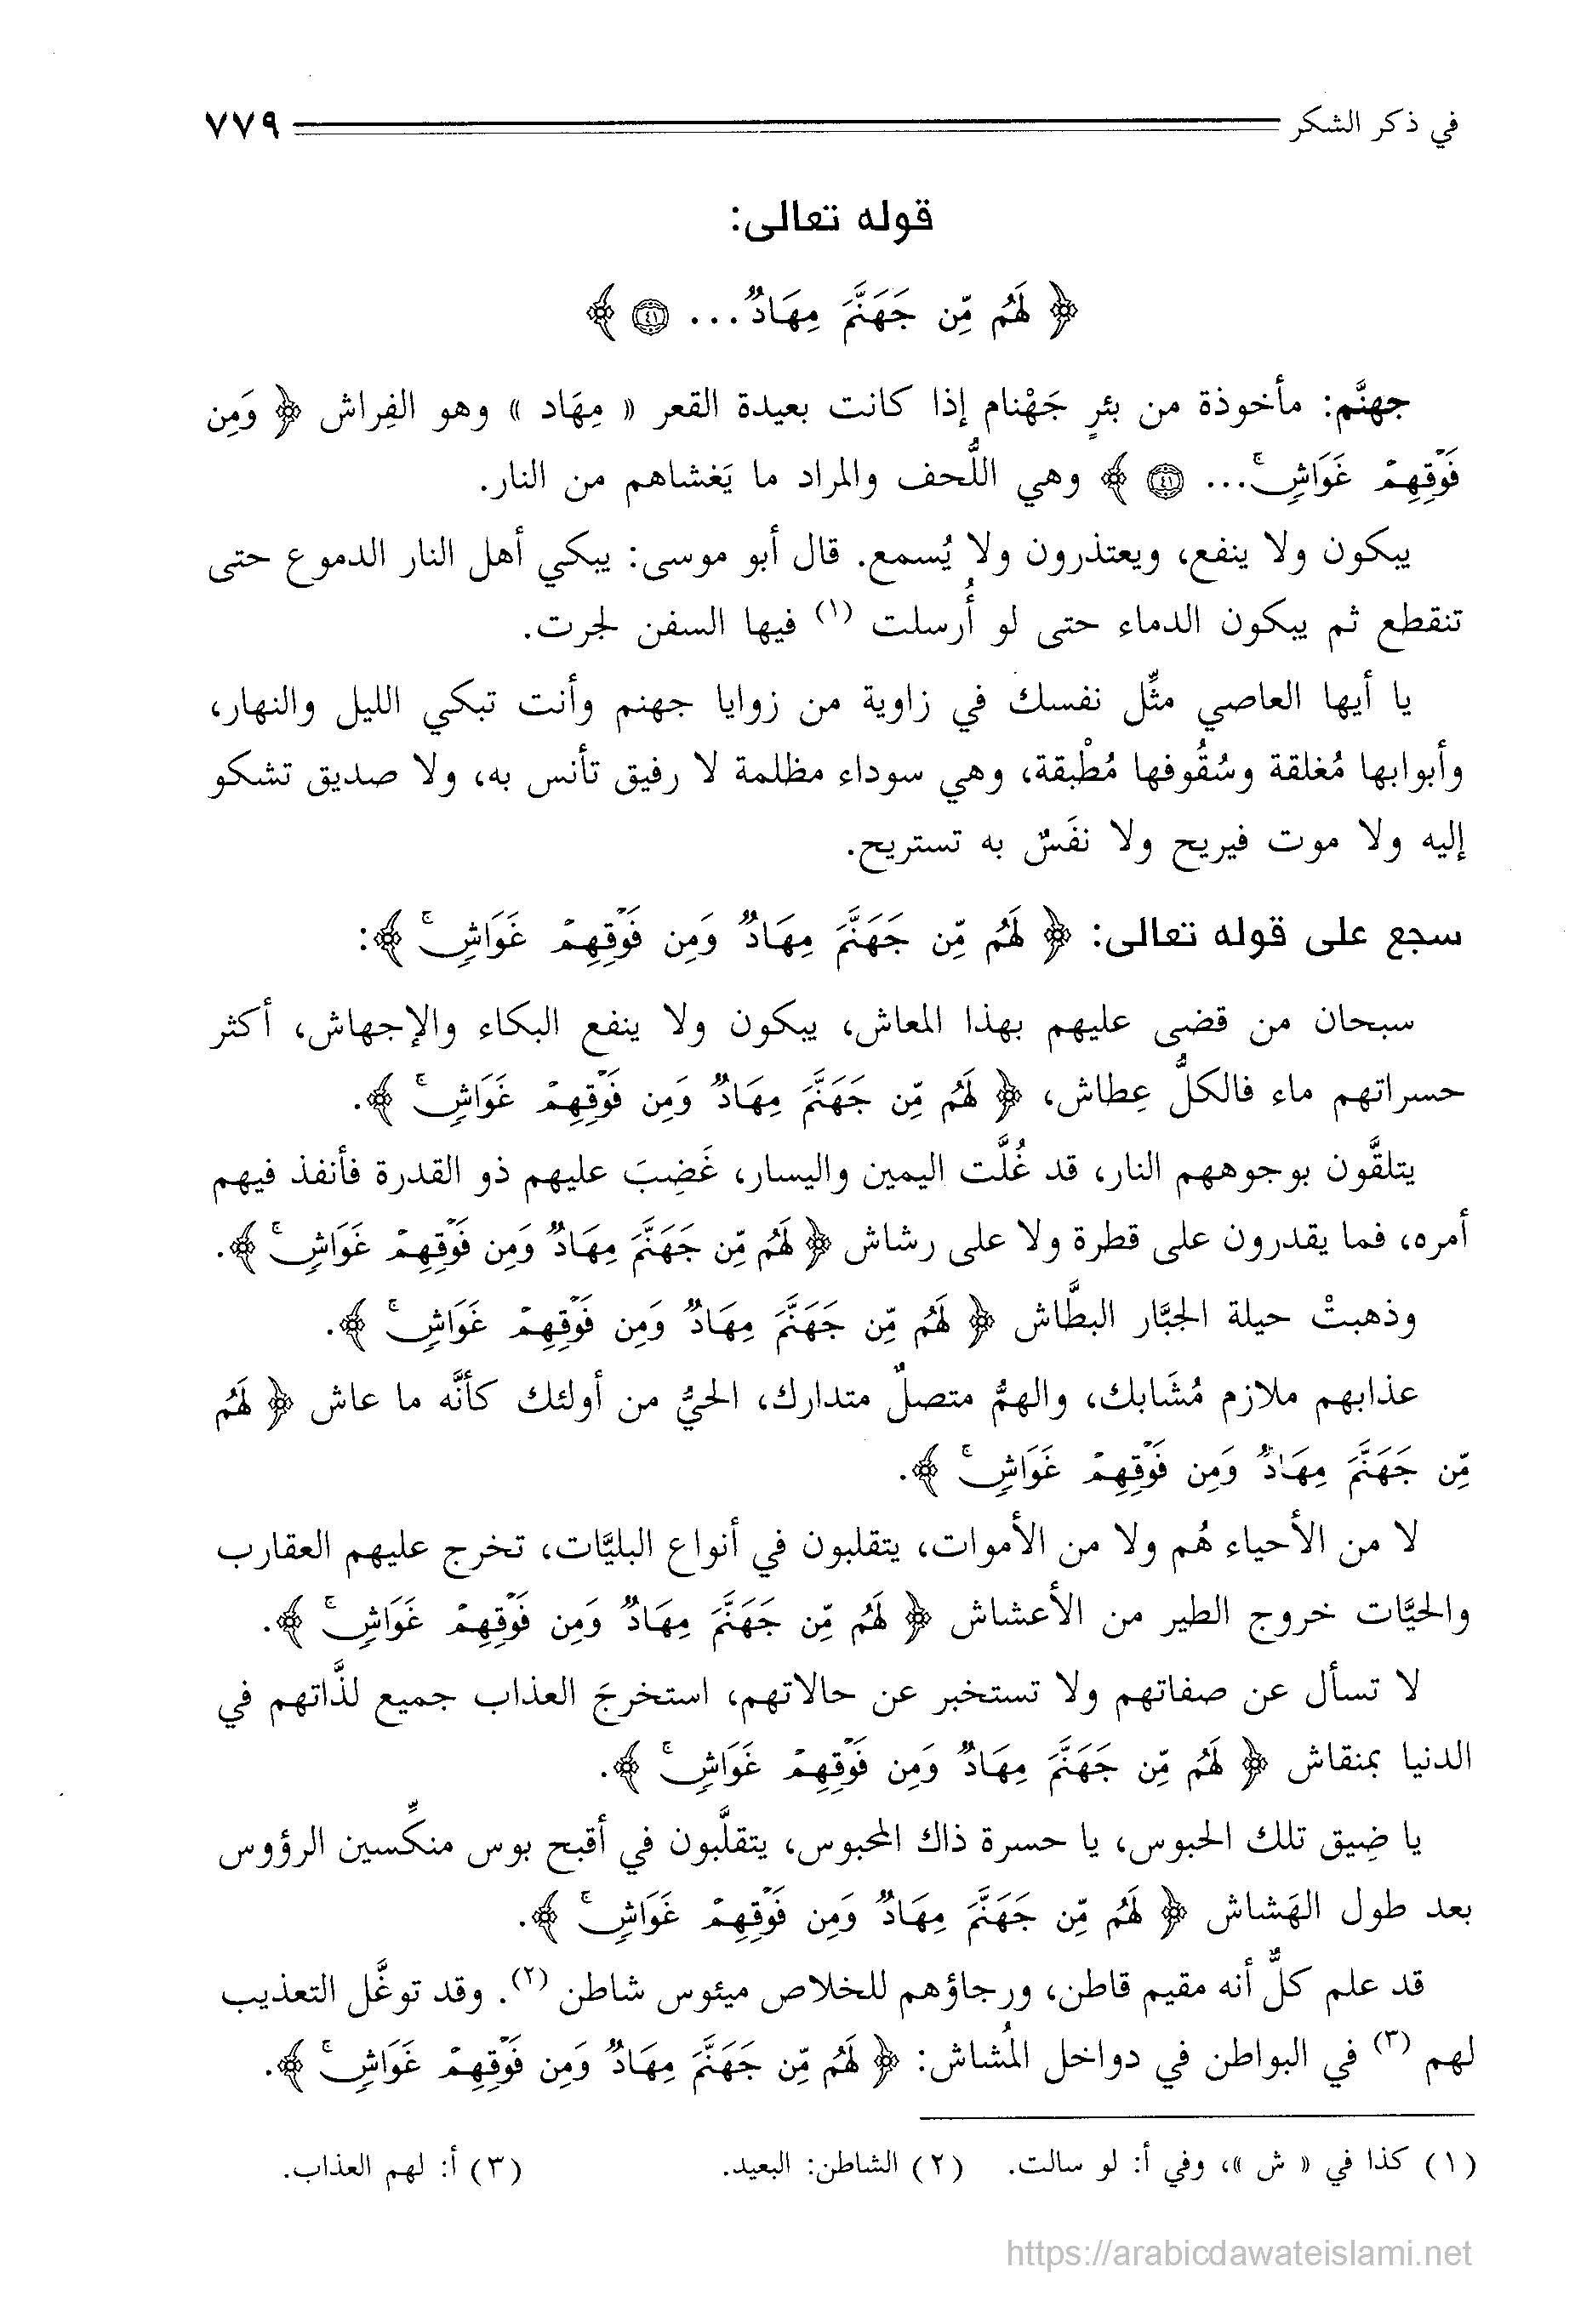 في ذكر الشكر ٧٧٩
قوله تعالى:
﴿ لَهُم مِّن جَهَنَّمَ مِهَادٌ... ٤١ ﴾
جهنَّم: مأخوذة من بئرٍ جَهْنام إذا كانت بعيدة القعر « مِهَاد » وهو الفِراش ﴿ وَمِن
فَوْقِهِمْ غَوَاشٍ ۚ... ٤١ ﴾ وهي اللُّحف والمراد ما يَغشاهم من النار.
يبكون ولا ينفع، ويعتذرون ولا يُسمع. قال أبو موسى: يبكي أهل النار الدموع حتى
تنقطع ثم يبكون الدماء حتى لو أُرسلت (١) فيها السفن لجرت.
يا أيها العاصي مثِّل نفسك في زاوية من زوايا جهنم وأنت تبكي الليل والنهار،
وأبوابها مُغلقة وسُقُوفها مُطْبقة، وهي سوداء مظلمة لا رفيق تأنس به، ولا صديق تشكو
إليه ولا موت فيريح ولا نفَسٌ به تستريح.
سجع على قوله تعالى: ﴿ لَهُم مِّن جَهَنَّمَ مِهَادٌ وَمِن فَوْقِهِمْ غَوَاشٍ ۚ ﴾:
سبحان من قضى عليهم بهذا المعاش، يبكون ولا ينفع البكاء والإجهاش، أكثر
حسراتهم ماء فالكلُّ عِطاش، ﴿ لَهُم مِّن جَهَنَّمَ مِهَادٌ وَمِن فَوْقِهِمْ غَوَاشٍ ۚ ﴾.
يتلقَّون بوجوههم النار، قد غُلَّت اليمين واليسار، غَضِبَ عليهم ذو القدرة فأنفذ فيهم
أمره، فما يقدرون على قطرة ولا على رشاش ﴿ لَهُم مِّن جَهَنَّمَ مِهَادٌ وَمِن فَوْقِهِمْ غَوَاشٍ ۚ ﴾.
وذهبتْ حيلة الجبَّار البطَّاش ﴿ لَهُم مِّن جَهَنَّمَ مِهَادٌ وَمِن فَوْقِهِمْ غَوَاشٍ ۚ ﴾.
عذابهم ملازم مُشَابك، والهمُّ متصلٌ متدارك، الحيُّ من أولئك كأنَّه ما عاش ﴿ لَهُم
مِّن جَهَنَّمَ مِهَادٌ وَمِن فَوْقِهِمْ غَوَاشٍ ۚ ﴾.
لا من الأحياء هُم ولا من الأموات، يتقلبون في أنواع البليَّات، تخرج عليهم العقارب
والحيَّات خروج الطير من الأعشاش ﴿ لَهُم مِّن جَهَنَّمَ مِهَادٌ وَمِن فَوْقِهِمْ غَوَاشٍ ۚ ﴾.
لا تسأل عن صفاتهم ولا تستخبر عن حالاتهم، استخرجَ العذاب جميع لذَّاتهم في
الدنيا بمنقاش ﴿ لَهُم مِّن جَهَنَّمَ مِهَادٌ وَمِن فَوْقِهِمْ غَوَاشٍ ۚ ﴾.
يا ضِيق تلك الحبوس، يا حسرة ذاك المحبوس، يتقلَّبون في أقبح بوس منكِّسين الرؤوس
بعد طول الهَشاش ﴿ لَهُم مِّن جَهَنَّمَ مِهَادٌ وَمِن فَوْقِهِمْ غَوَاشٍ ۚ ﴾.
قد علم كلٌّ أنه مقيم قاطن، ورجاؤهم للخلاص ميئوس شاطن (٢). وقد توغَّل التعذيب
لهم (٣) في البواطن في دواخل المُشاش: ﴿ لَهُم مِّن جَهَنَّمَ مِهَادٌ وَمِن فَوْقِهِمْ غَوَاشٍ ۚ ﴾.
(١) كذا في « ش »، وفي أ: لو سالت. (٢) الشاطن: البعيد. (٣) أ: لهم العذاب.
https://arabicdawateislami.net